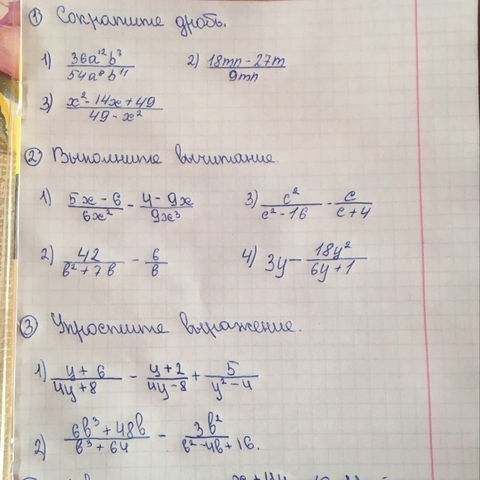 ① Сократите дробь.
1) 36a¹²b³/54a⁹b¹¹ 2) 18mn - 27m/9mn
3) x² - 14x + 49/49 - x²
② Выполните вычитание.
1) 5x - 6/6x² - 4 - 9x/9x³ 3) c²/c² - 16 - c/c + 4
2) 42/b² + 7b - 6/b 4) 3y - 18y²/6y + 1
③ Упростите выражение.
1) y + 6/4y + 8 - y + 2/4y - 8 + 5/y² - 4
2) 6b³ + 48b/b³ + 64 - 3b²/b² - 4b + 16.